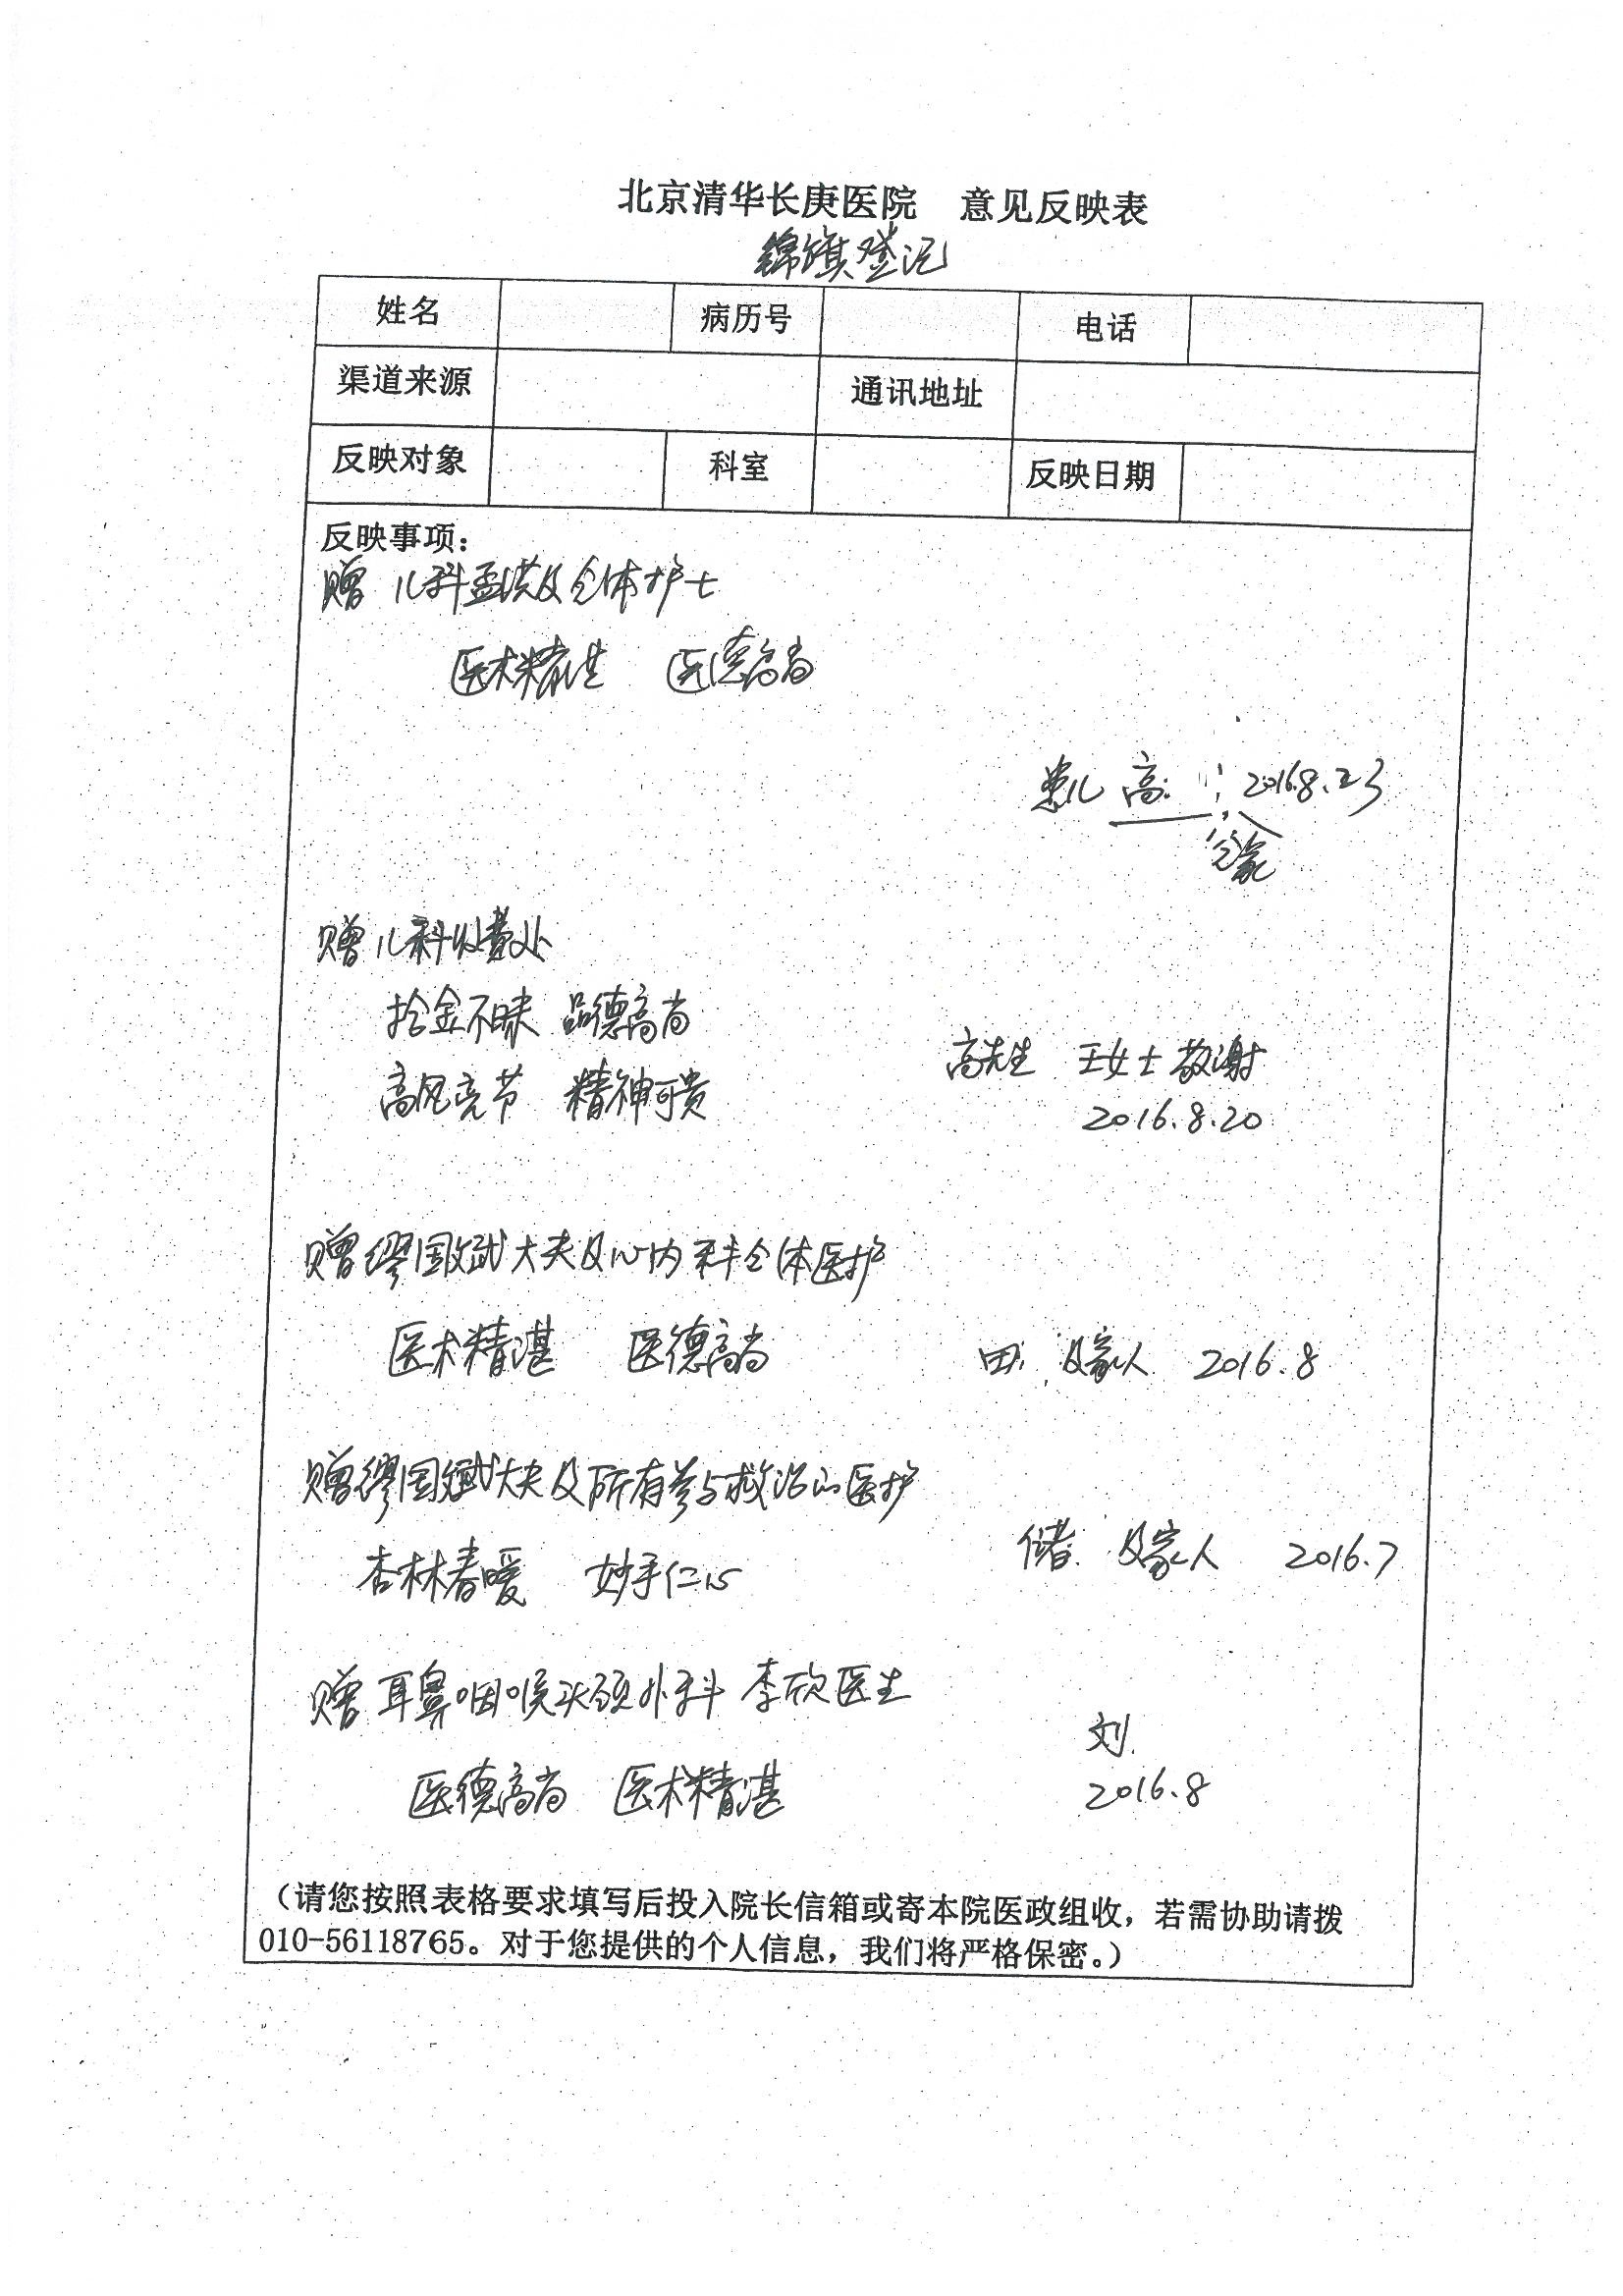 北京清华长庚医院 意见反映表
锦旗登记
姓名 病历号 电话
渠道来源 通讯地址
反映对象 科室 反映日期
反映事项：
赠 儿科孟洪及全体护士
医术精湛 医德高尚
患儿 高 2016.8.23
全家
赠儿科收费处
拾金不昧 品德高尚
高风亮节 精神可贵
高先生 王女士敬谢
2016.8.20
赠缪国斌大夫及心内科全体医护
医术精湛 医德高尚 田 及家人 2016.8
赠缪国斌大夫及所有参与救治的医护
杏林春暖 妙手仁心 储 及家人 2016.7
赠 耳鼻咽喉头颈外科 李欣医生
刘
医德高尚 医术精湛 2016.8
（请您按照表格要求填写后投入院长信箱或寄本院医政组收，若需协助请拨
010-56118765。对于您提供的个人信息，我们将严格保密。）